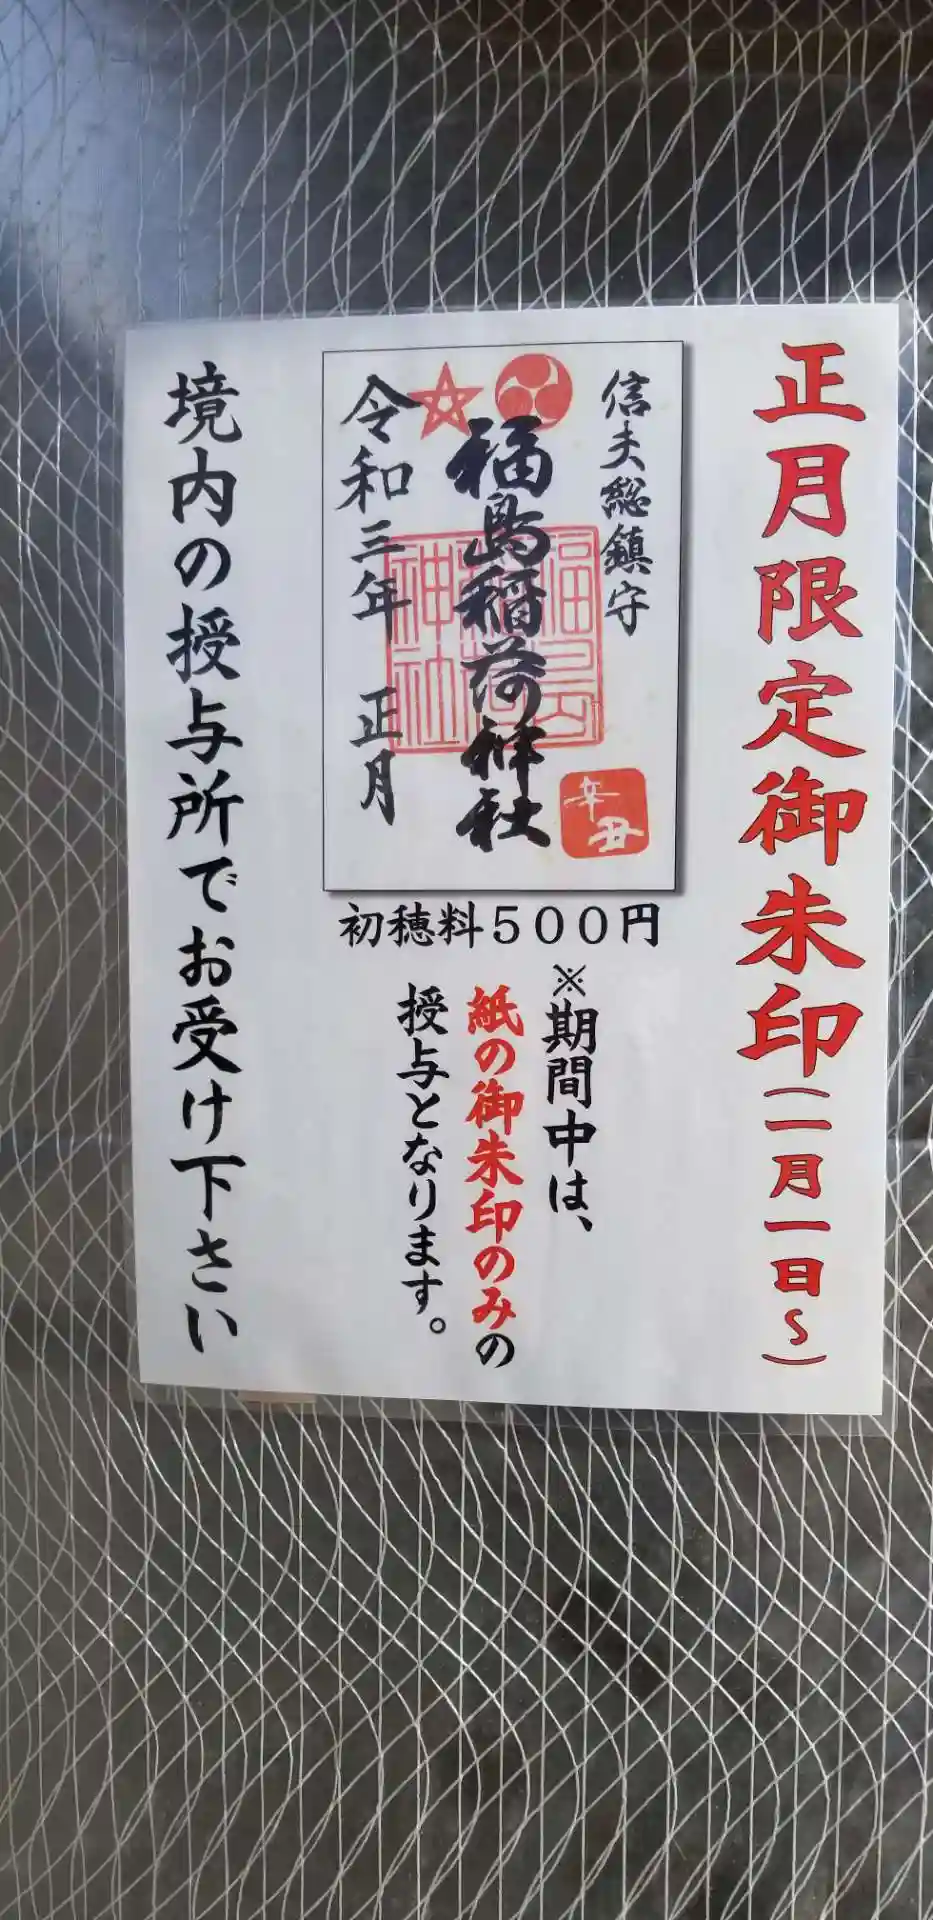 正月限定御朱印(一月一日~)
信夫総鎮守
福島稲荷神社
令和三年 正月
辛丑
初穂料500円
※期間中は、
紙の御朱印のみの
授与となります。
境内の授与所でお受け下さい